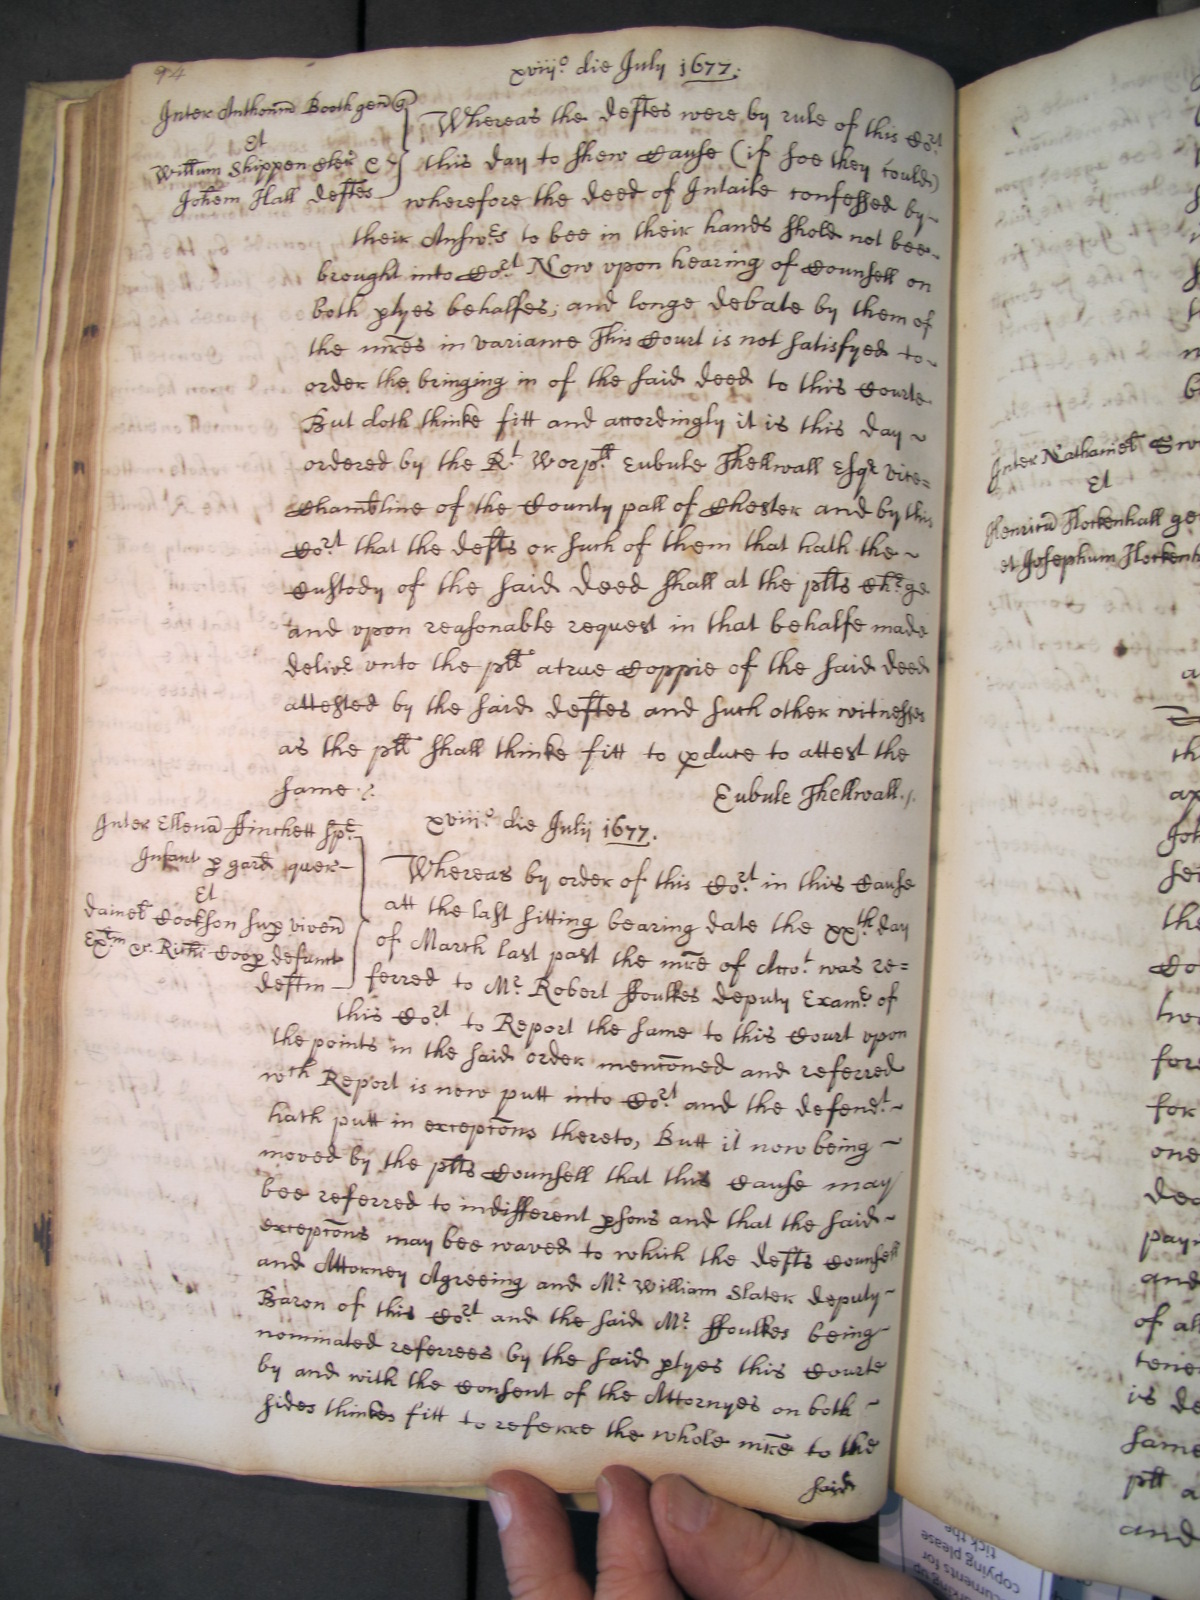 94
xviij.o die July 1677.
Inter Anthoniu Booth gen q
Et
Willum Skippen
Johem Hall deftes
Whereas the deftes were by rule of this Cort
this day to shew Cause (if soe they could)
wherefore the deed of Intaile confessed by
their Answres to bee in their hands shold not bee
brought into Cort Now upon hearing of Counsell on
both ptyes behalfes; and longe debate by them of
the mres in variance This Court is not satisfyed to
order the bringing in of the said deed to this Courte
But doth thinke fitt and accordingly it is this day
ordered by the Rt Worpll Eubule Thellwall Esqr vice=
Chambline of the County pall of Chester and by this
Cort that the defts or such of them that hath the
Custody of the said deed shall at the plts Chrge
and upon reasonable request in that behalfe made
deliv unto the plt a true Coppie of the said deed
attested by the said deftes and such other witnesses
as the plt shall thinke fitt to pduce to attest the
same
Eubule Thellwall.
xviij.o die Julij 1677.
Inter Ellena Finchett
Infant p gard quer
Et
Daniel Cookson sup viven
Exm Richi Coop defunct
deftm
Whereas by order of this Cort in this Cause
att the last sitting bearing date the xxth day
of March last past the mre of Acco.t was re=
ferred to Mr Robert ffoulkes deputy Exam of
this Cort to Report the same to this Court upon
the points in the said order mencioned and referred
wch Report is now putt into Cort and the defend.t
hath putt in excepcons thereto, Butt it now being
moved by the plts Counsell that this Cause may
bee referred to indifferent psons and that the said
excepcons may bee waved to which the defts Counsell
and Attorney Agreeing and Mr William Slater deputy
Baron of this Cort and the said Mr ffoulkes being
nominated referrees by the said ptyes this Courte
by and with the Consent of the Attornyes on both
sides thinkes fitt to referre the whole mre to the
said
Inter Nathaniel
Et
Henricu Hockenhall ge
et Josephum Hockenh
th
the
Co
fore
for
one
dec
payn
and
of al
tene
is de
same
plt a
and
tick the
copying please
cuments for